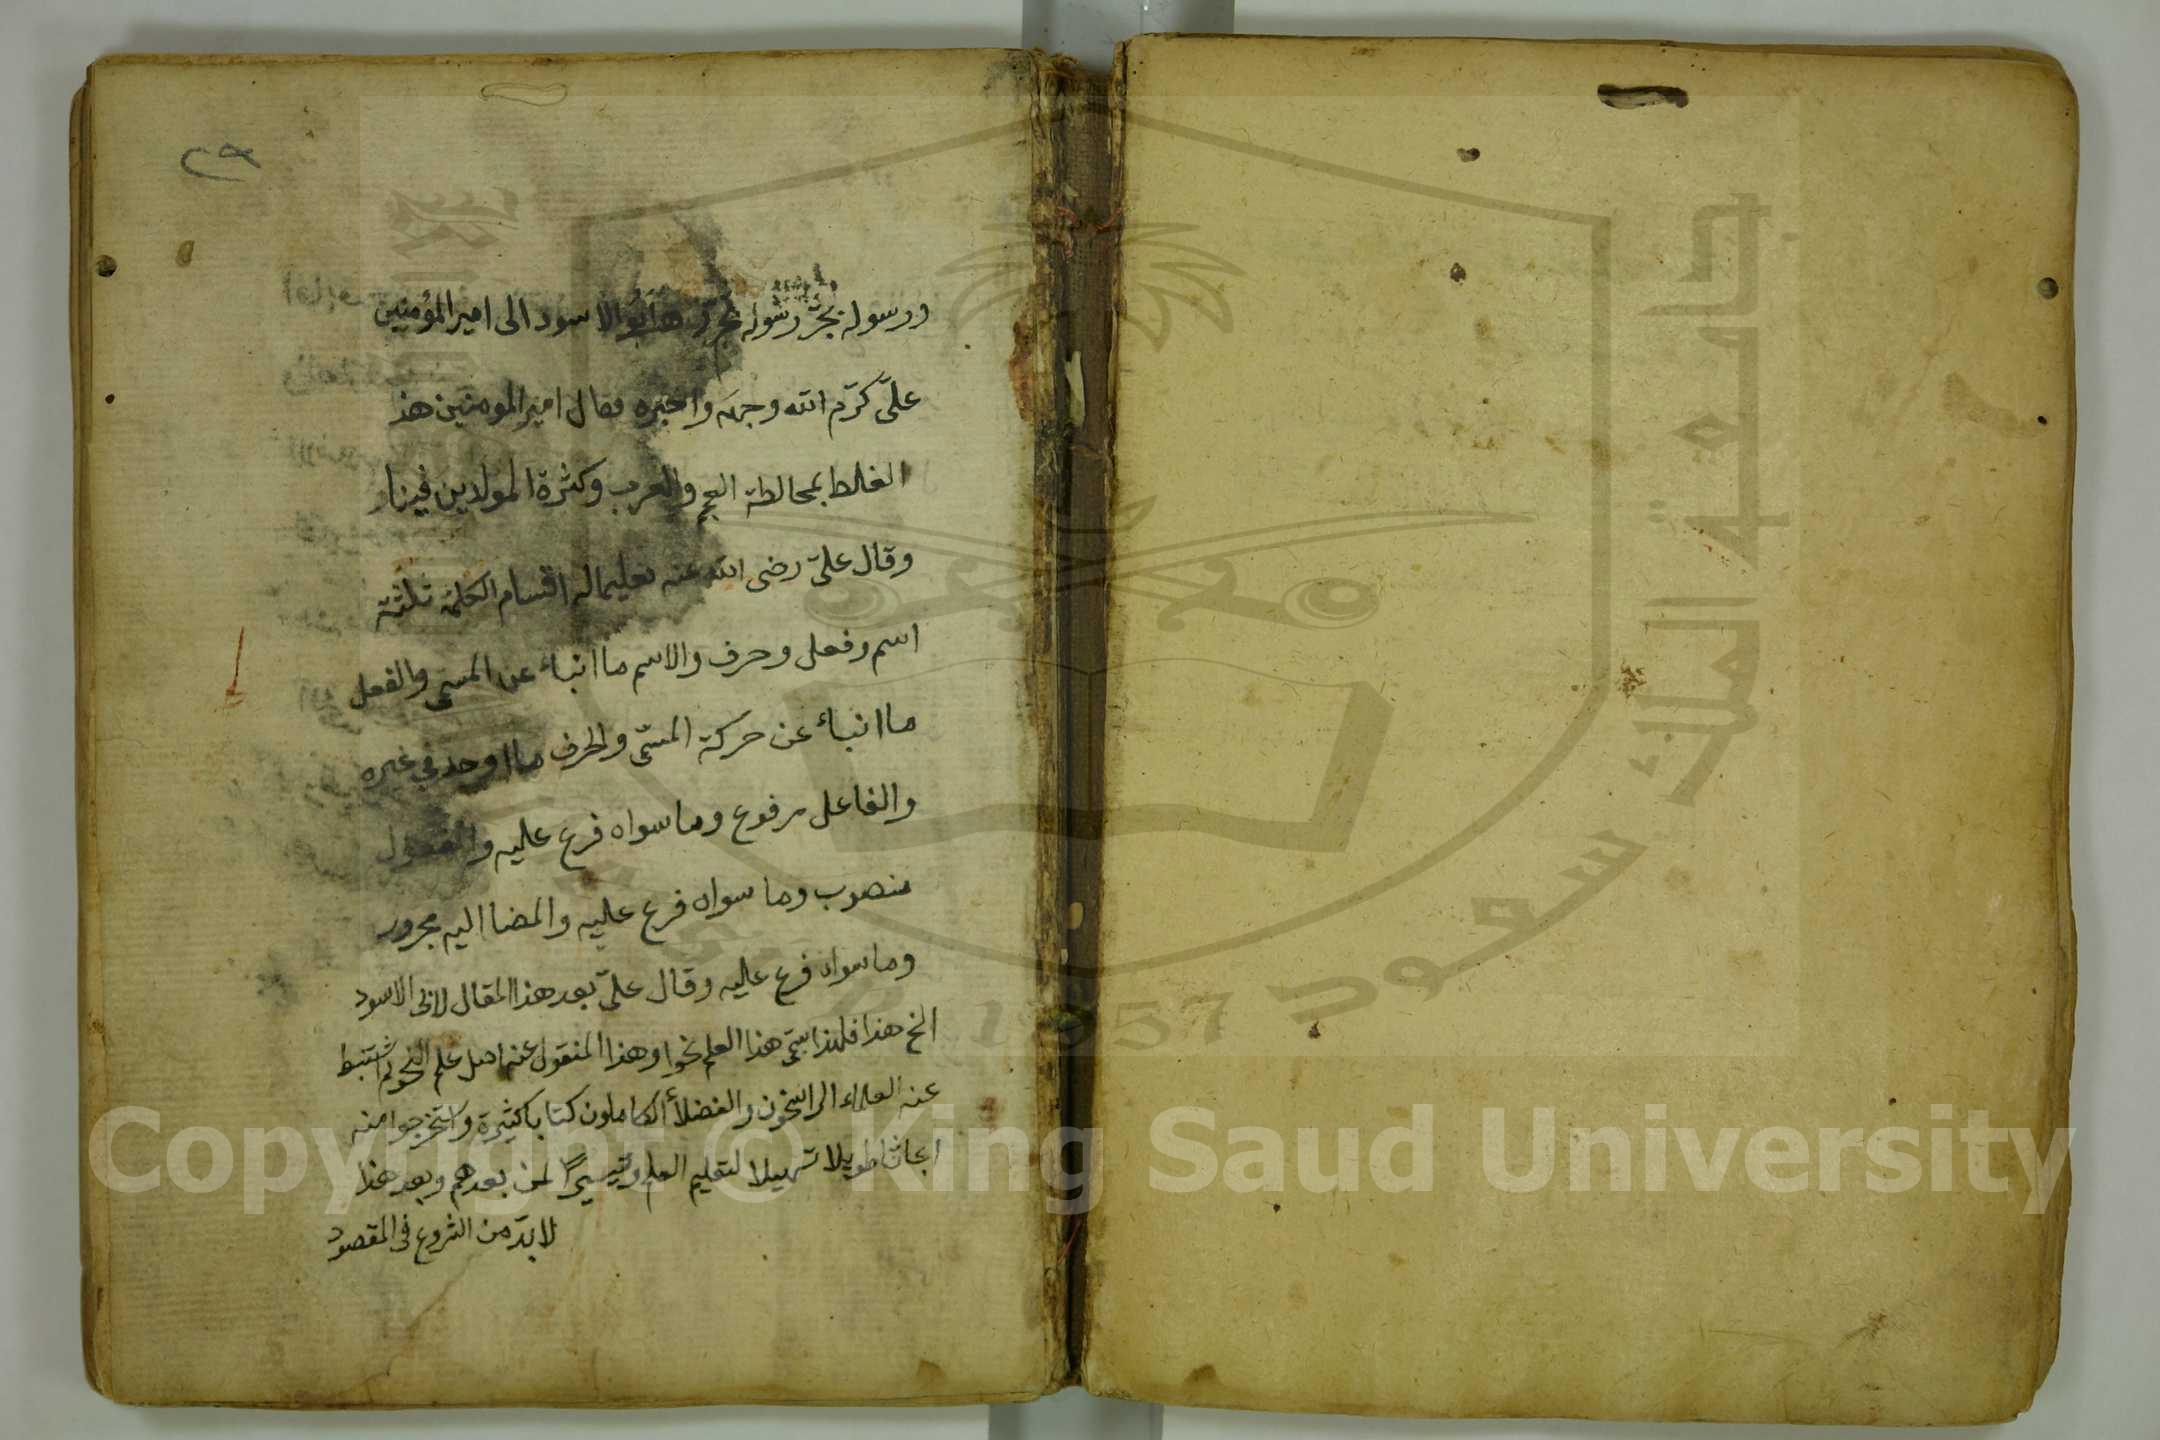 ٢٩
ورسوله بجرّ رسوله ابو الاسود الى امير المؤمنين
علىّ كرّم الله وجهه واخبره فقال امير المومنين هذ
الغلط بمخالطة العجم والعرب وكثرة المولدين فينا
وقال علىّ رضى الله عنه تعليما له اقسام الكلمة ثلثة
اسم وفعل وحرف والاسم ما انباء عن المسمى والفعل
ما انباء عن حركة المسمّى والحرف ما اوحد فى غيره
والفاعل مرفوع وما سواه فرع عليه والمفعول
منصوب وما سواه فرع عليه والمضا اليه مجرور
وما سواه فرع عليه وقال علىّ بعد هذا المقال لابى الاسود
انح هذا فلهذا سمّى هذا العلم نحوا وهذا المنقول عنه اصل علم النحو ثم استنبط
عنه العلماء الراسخون والفضلأ الكاملون كتابا كثيرة واستخرجوا منه
ابحاثا طويلا تسهيلا لتعليم العلم وتيسيرًا لمن بعدهم وبعد هذا
لا بدّ من الشروع فى المقصود
جامعة الملك سعود
1957
Copyright © King Saud University